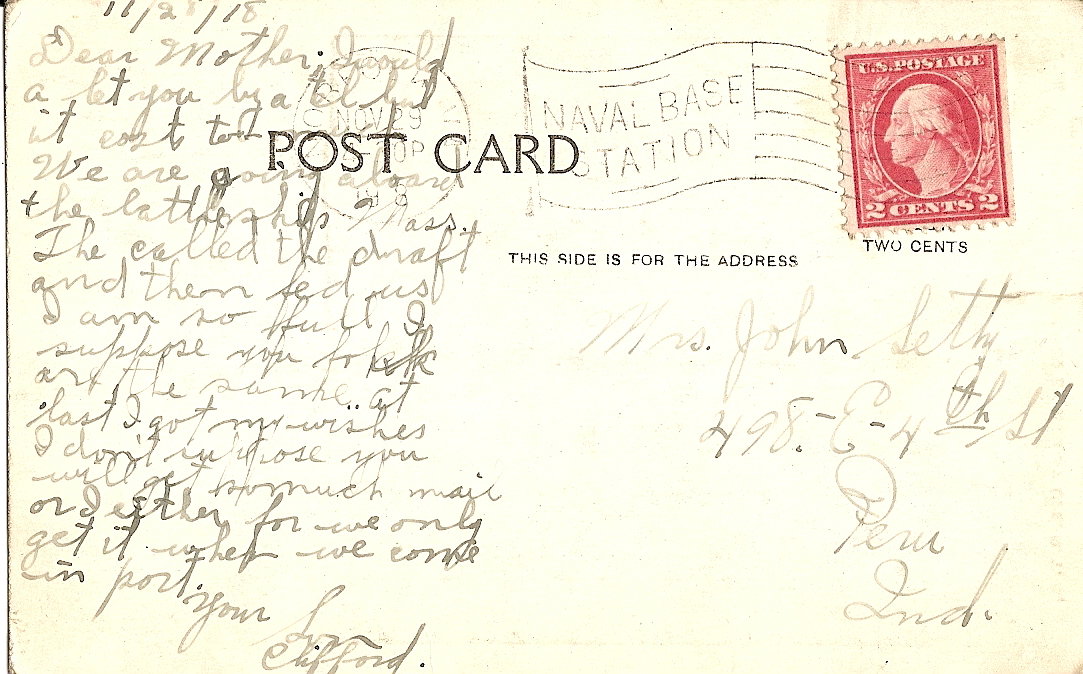 11/28/18
Dear Mother; I would
a let you by a tel but
it cost to much
We are going aboard
the battleship Mass.
The called the draft
and then fed us
I am so full I
suppose you folks
are the same. at
last I got my wishes
I don't suppose you
will get so much mail
or I either for we only
get it when we come
in port.
Your Son
Clifford.
NOV 29
POST CARD
NAVAL BASE
STATION
U.S. POSTAGE
2 CENTS 2
TWO CENTS
THIS SIDE IS FOR THE ADDRESS
Mrs. John Setty
498-E-4th St
Peru
Ind.